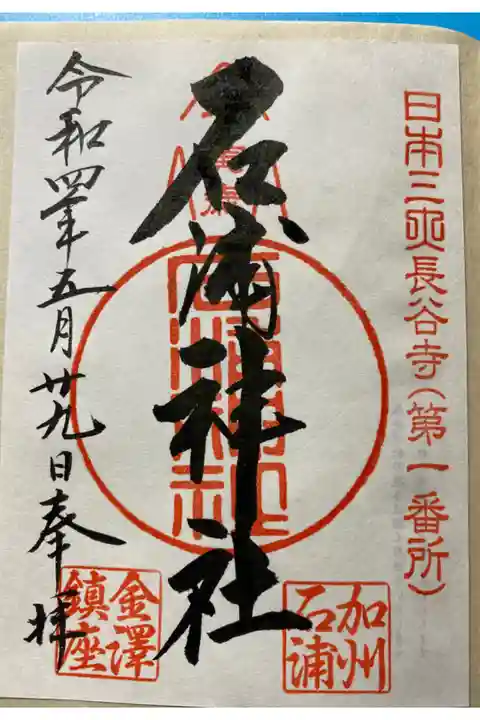 日本三大長谷寺(第一番所)
加州
石浦
石浦神社
令和四年五月廿九日奉拝
金澤
鎮座